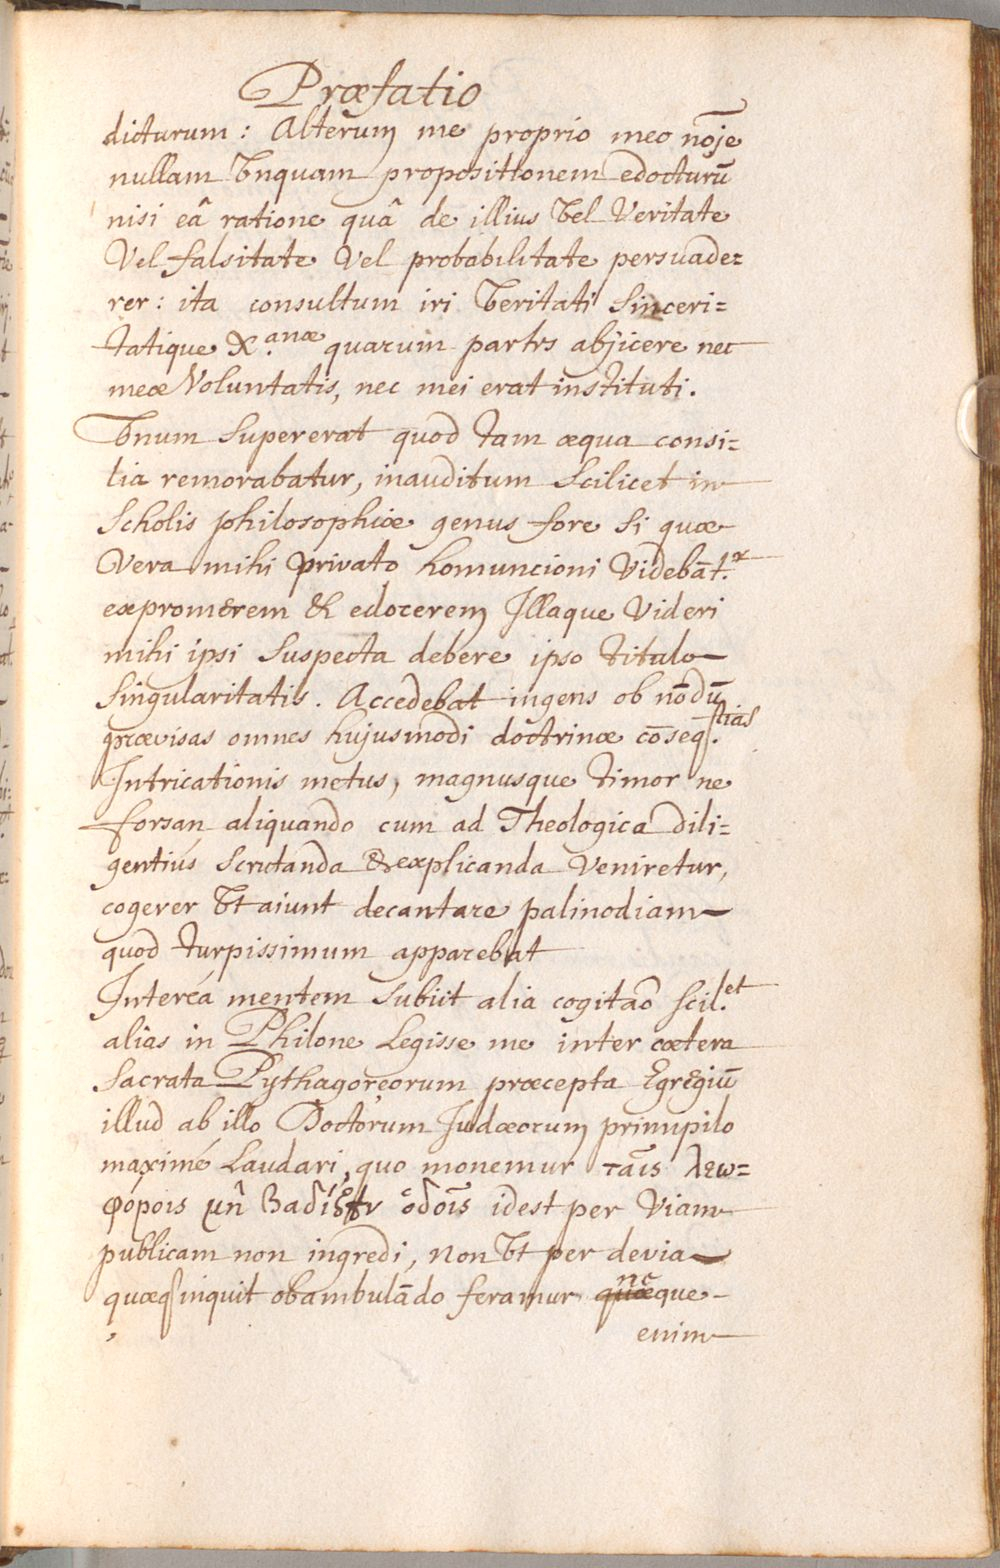 Præfatio
dicturum : Alterum me proprio meo noīe
nullam Vnquam propositionem edocturū
nisi eâ ratione quâ de illius Vel Veritate
Vel falsitate Vel probabilitate persuade=
rer : ita consultum iri Veritati Sinceri=
tatique X.anæ quarum partes abjicere nec
meæ Voluntatis, nec mei erat instituti.
Vnum Supererat quod tam æqua consi=
lia remorabatur, inauditum Scilicet in
Scholis philosophiæ genus fore Si quæ
Vera mihi privato homuncioni Videbāt.r
expromerem & edocerem Illaque Videri
mihi ipsi Suspecta debere ipso titulo
Singularitatis. Accedebat ingens ob nōdū
prævisas omnes hujusmodi doctrinæ cōseq.tias
Intricationis metus, magnusque timor ne
forsan aliquando cum ad Theologica dili=
gentiús Scrutanda & explicanda Veniretur,
cogerer Vt aiunt decantare palinodiam
quod turpissimum apparebat
Intereá mentem Subiit alia cogitaō scil.et
alias in Philone Legisse me inter cætera
Sacrata Pythagoreorum præcepta Egregiū
illud ab illo Doctorum Judæorum primipilo
maximé Laudari, quo monemur ταῖς λεω=
φόροις μὴ βαδίζειν ὁδοῖς idest per Viam
publicam non ingredi, non Vt per devia
quæq inquit obambulādo feramur neque
enim